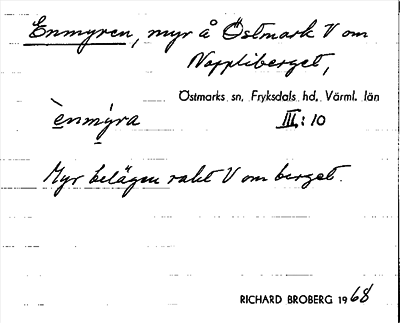 Enmyren, myr å Östmark V om
Noppliberget,
Östmarks sn, Fryksdals hd, Värml. län
ènmýra III: 10
Myr belägen rakt V om berget.
RICHARD BROBERG 1968